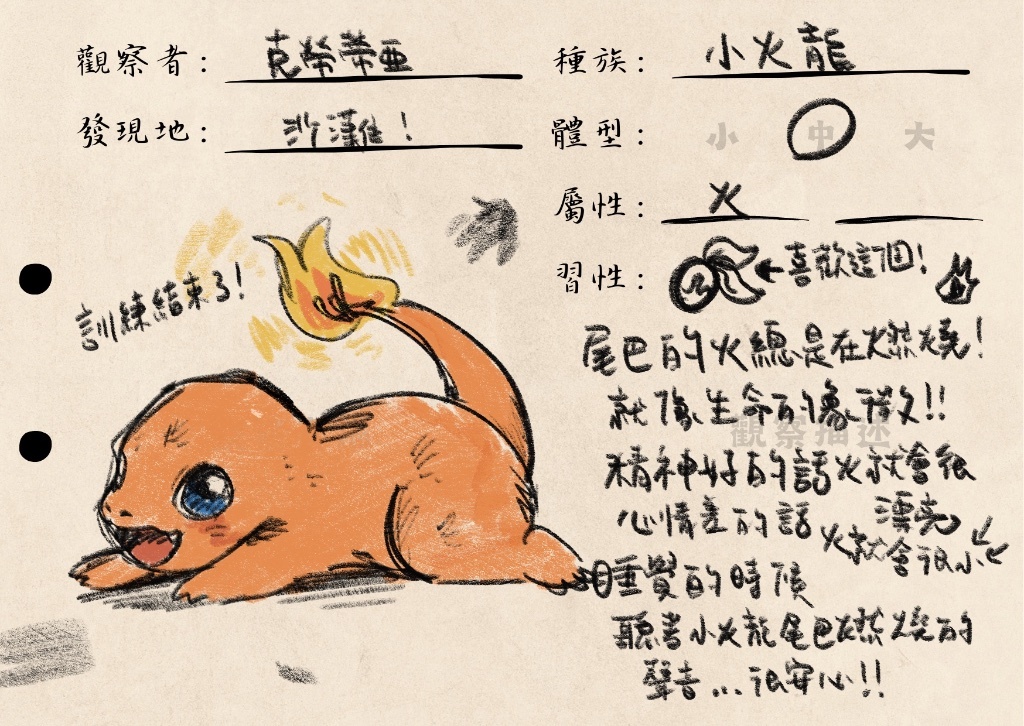 觀察者: 克勞蒂亞
種族: 小火龍
發現地: 沙灘!
體型: 小 中 大
屬性: 火
習性: 喜歡這個!
訓練結束了!
尾巴的火總是在燃燒!
就像生命的象徵!!
觀察描述
精神好的話火就會很
漂亮
心情差的話
火就會很小
睡覺的時候
聽著小火龍尾巴燃燒的
聲音...很安心!!